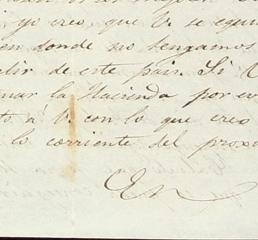 yo creo que V. se equi
en donde no tengamos
lir de este pais. Si
mar la Hacienda por
to á V. con lo que creo
lo corriente del proxi
En